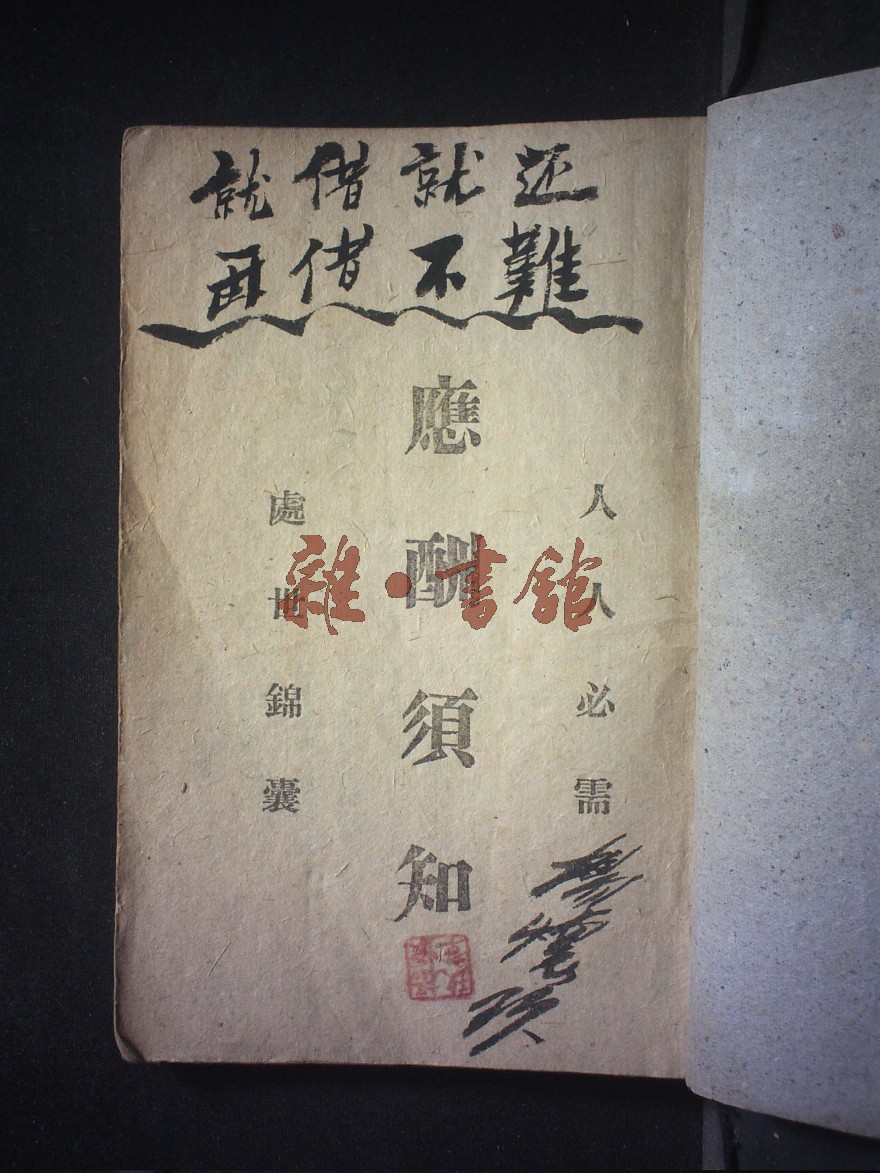 就借就还
再借不難
人人必需
應酬須知
處世錦囊
雜·書館